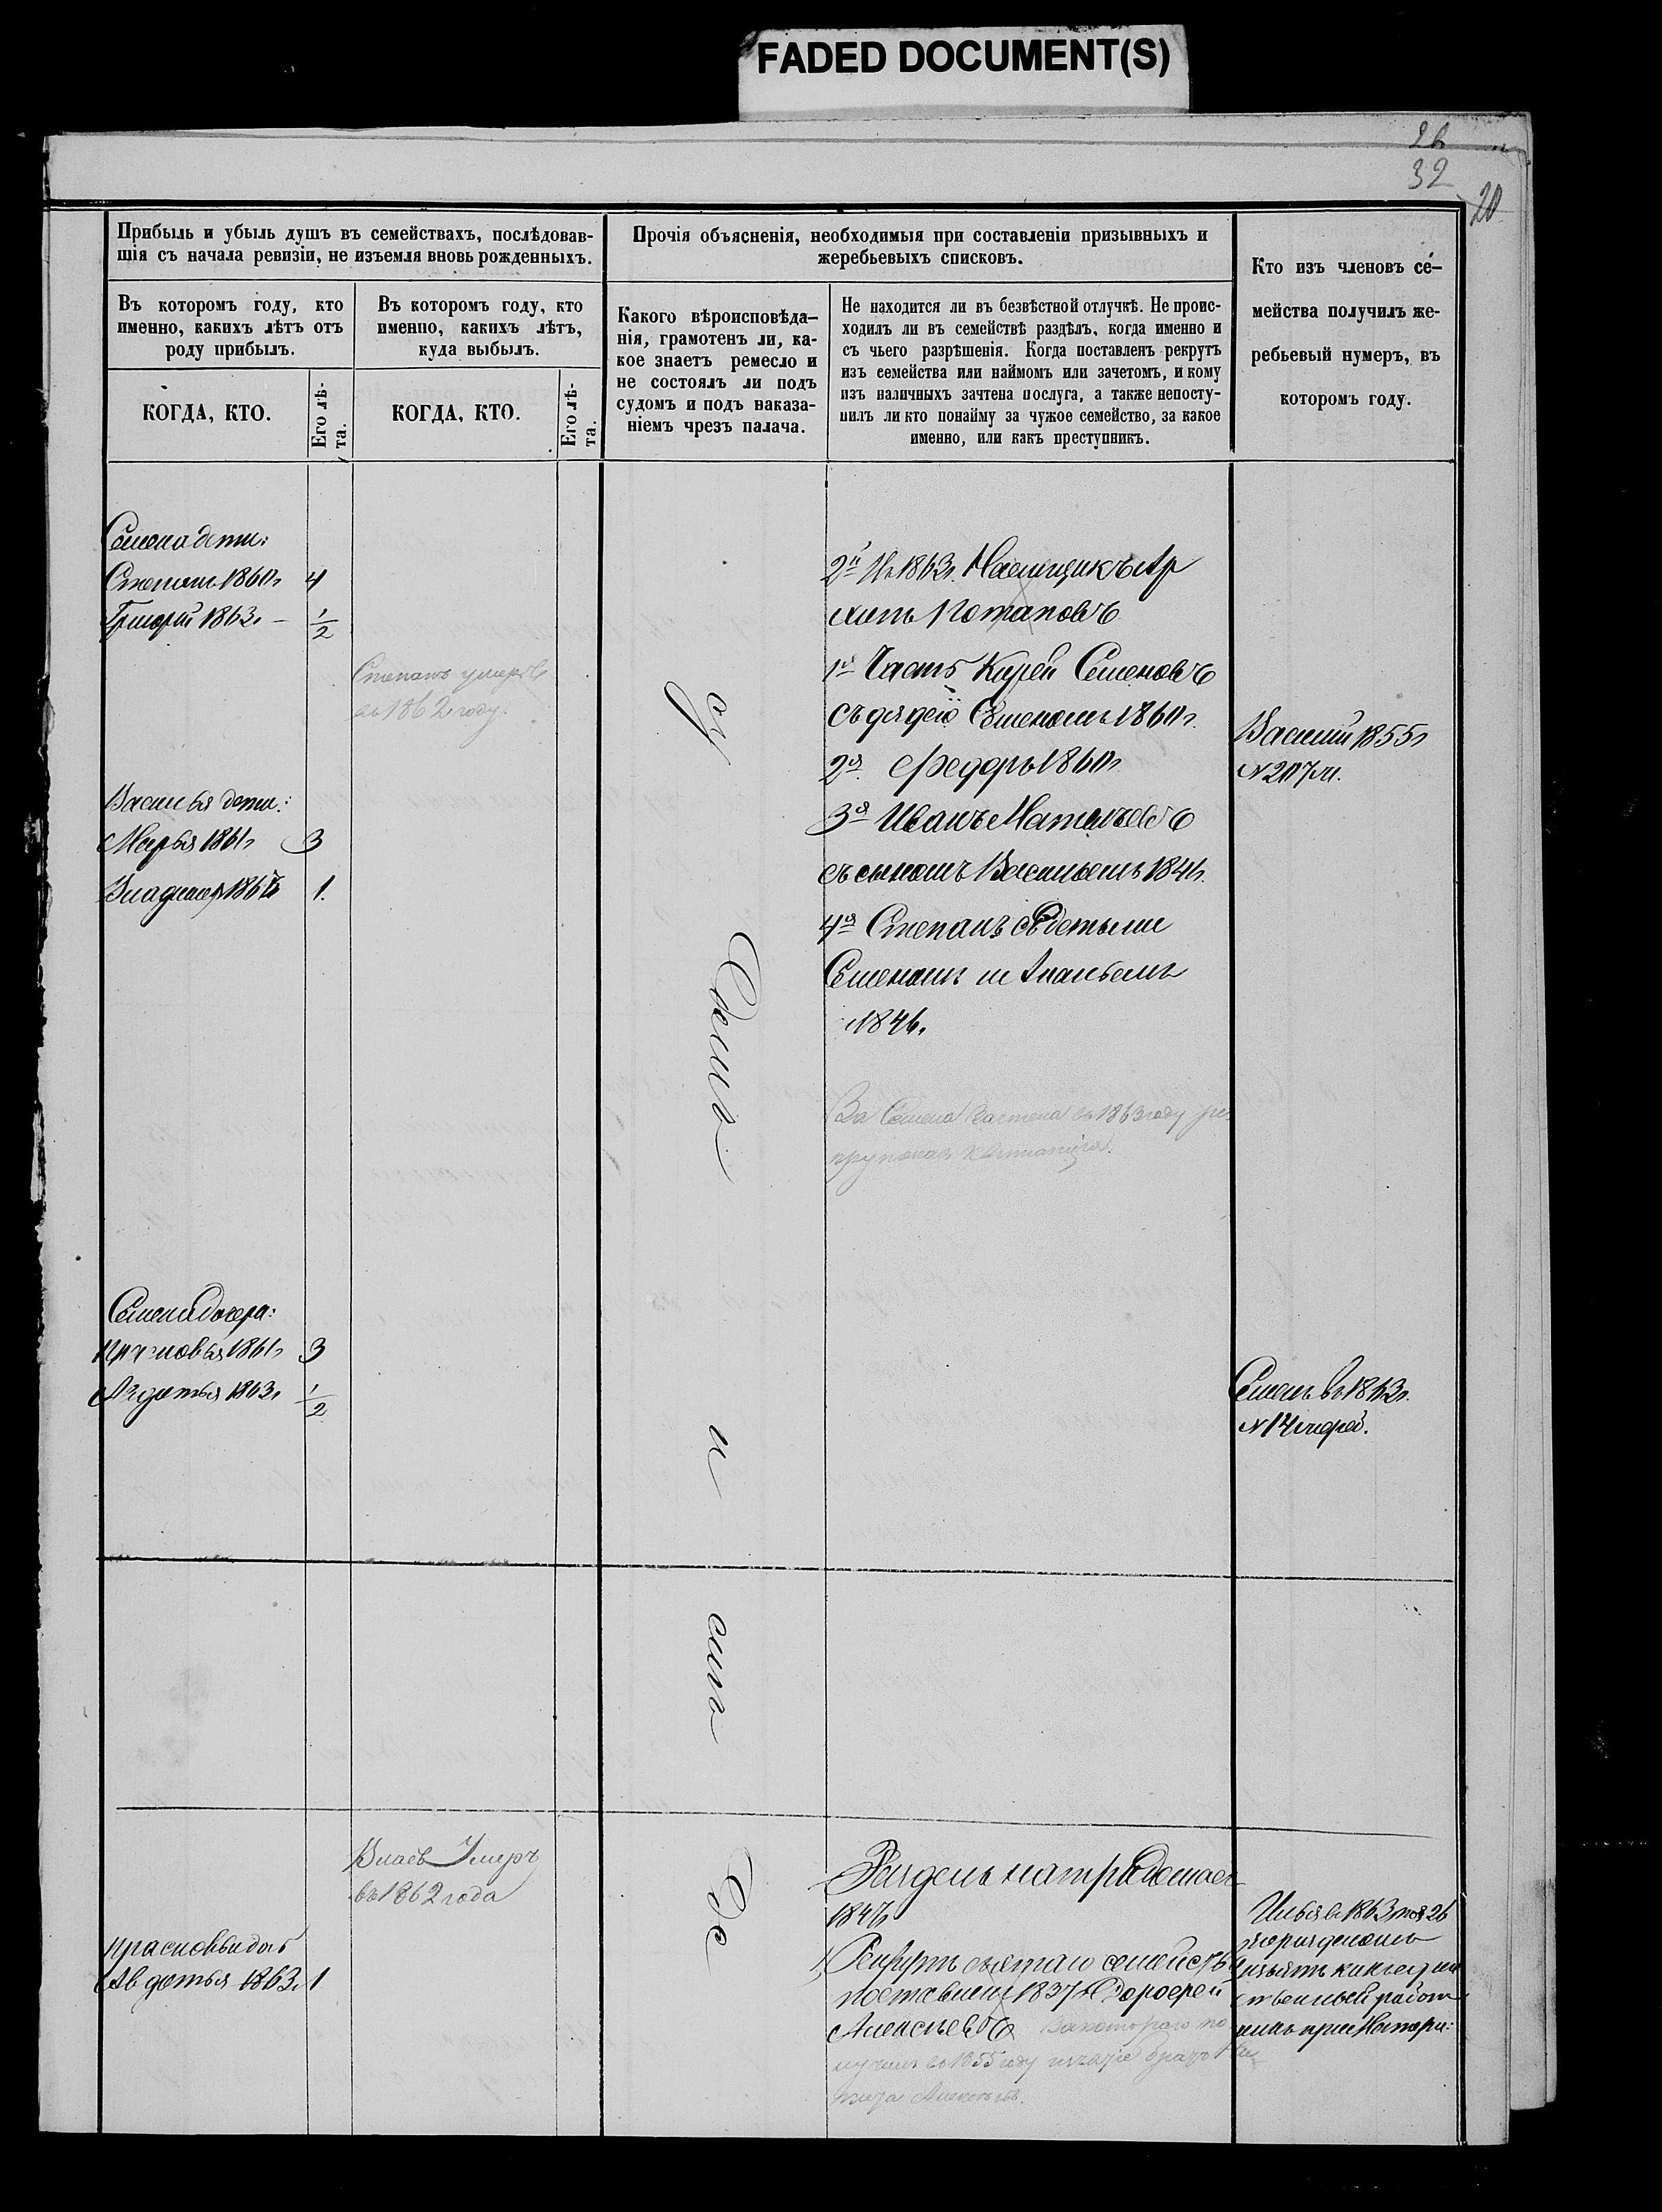 FADED DOCUMENT(S)
26
32
20
Прибыль и убыль душъ въ семействахъ, послѣдовав-
шія съ начала ревизіи, не изъемля вновь рожденныхъ.
Прочія объясненія, необходимыя при составленіи призывныхъ и
жеребьевыхъ списковъ.
Кто изъ членовъ се-
мейства получилъ же-
ребьевый нумеръ, въ
которомъ году.
Въ которомъ году, кто
именно, какихъ лѣтъ отъ
роду прибылъ.
Въ которомъ году, кто
именно, какихъ лѣтъ,
куда выбылъ.
Какого вѣроисповѣда-
нія, грамотенъ ли, ка-
кое знаетъ ремесло и
не состоялъ ли подъ
судомъ и подъ наказа-
ніемъ чрезъ палача.
Не находится ли въ безвѣстной отлучкѣ. Не проис-
ходилъ ли въ семействѣ раздѣлъ, когда именно и
съ чьего разрѣшенія. Когда поставленъ рекрутъ
изъ семейства или наймомъ или зачетомъ, и кому
изъ наличныхъ зачтена послуга, а также непосту-
пилъ ли кто понайму за чужое семейство, за какое
именно, или какъ преступникъ.
КОГДА, КТО.
Его лѣ-
та.
КОГДА, КТО.
Его лѣ-
та.
Семена дети:
Степанъ 1860г 4
Григорій 1863г - 1/2
Степанъ умеръ
въ 1862 году.
2й Въ 1863г. Наемщикъ Ар
хипъ Потаповъ
1я Часть Кирей Семеновъ
съ дядею Семеномъ 1860г.
2я Федоръ 1860г
3я Иванъ Матвѣевъ
съ сыномъ Васильемъ 1846г.
4я Степанъ съ детьми
Семеномъ и Ананьемъ
1846г.
Василій 1855г
№ 207м.
Василья дети:
Марья 1861г 3
Владимеръ 1863г 1.
За Семена зачтена въ 1863 году ре
крутская квитанція.
Семена дочери:
Прасковья 1861г 3
Авдотья 1863г 1/2
Семенъ въ 1863г.
№ 14
Власъ Умеръ
въ 1862 года
Прасковьи доч
Авдотья 1863г 1
Раздѣлъ на три
1847г
Рекрутъ съ этаго семейства
поставленъ 1837г Дорофей
Алексѣевъ За котораго по
въ 1855 году братъ
Алексѣевъ.
Илья въ 1863 году 26